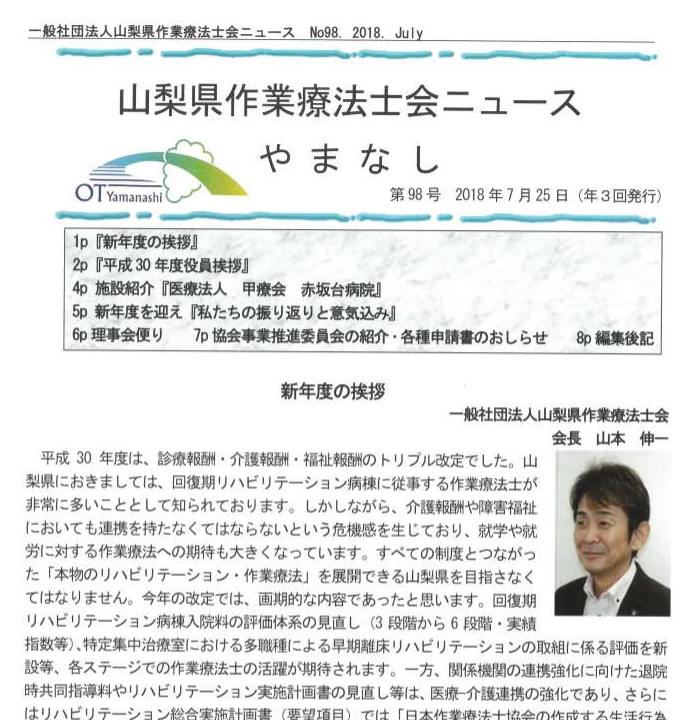 一般社団法人山梨県作業療法士会ニュース　No98. 2018. July
山梨県作業療法士会ニュース
やまなし
OT Yamanashi
第 98 号　2018 年 7 月 25 日（年３回発行）
1p『新年度の挨拶』
2p『平成 30 年度役員挨拶』
4p 施設紹介『医療法人　甲療会　赤坂台病院』
5p 新年度を迎え『私たちの振り返りと意気込み』
6p 理事会便り　　7p 協会事業推進委員会の紹介・各種申請書のおしらせ　　8p 編集後記
新年度の挨拶
一般社団法人山梨県作業療法士会
会長　山本　伸一
平成 30 年度は、診療報酬・介護報酬・福祉報酬のトリプル改定でした。山
梨県におきましては、回復期リハビリテーション病棟に従事する作業療法士が
非常に多いこととして知られております。しかしながら、介護報酬や障害福祉
においても連携を持たなくてはならないという危機感を生じており、就学や就
労に対する作業療法への期待も大きくなっています。すべての制度とつながっ
た「本物のリハビリテーション・作業療法」を展開できる山梨県を目指さなく
てはなりません。今年の改定では、画期的な内容であったと思います。回復期
リハビリテーション病棟入院料の評価体系の見直し（3 段階から 6 段階・実績
指数等）、特定集中治療室における多職種による早期離床リハビリテーションの取組に係る評価を新
設等、各ステージでの作業療法士の活躍が期待されます。一方、関係機関の連携強化に向けた退院
時共同指導料やリハビリテーション実施計画書の見直し等は、医療-介護連携の強化であり、さらに
はリハビリテーション総合実施計画書（要望項目）では「日本作業療法士協会の作成する生活行為